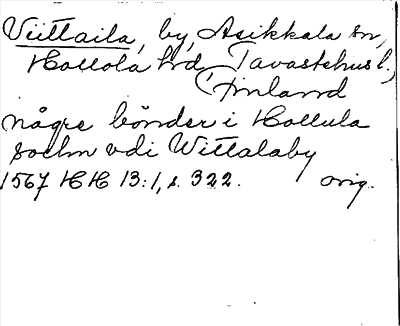 Viittaila, by, Asikkala sn,
Hollola hd, Tavastehus l.,
(Finland
någre bönder i Hollula
sochn vdi Wittalaby
1567 HH 13:1, s. 322. orig.